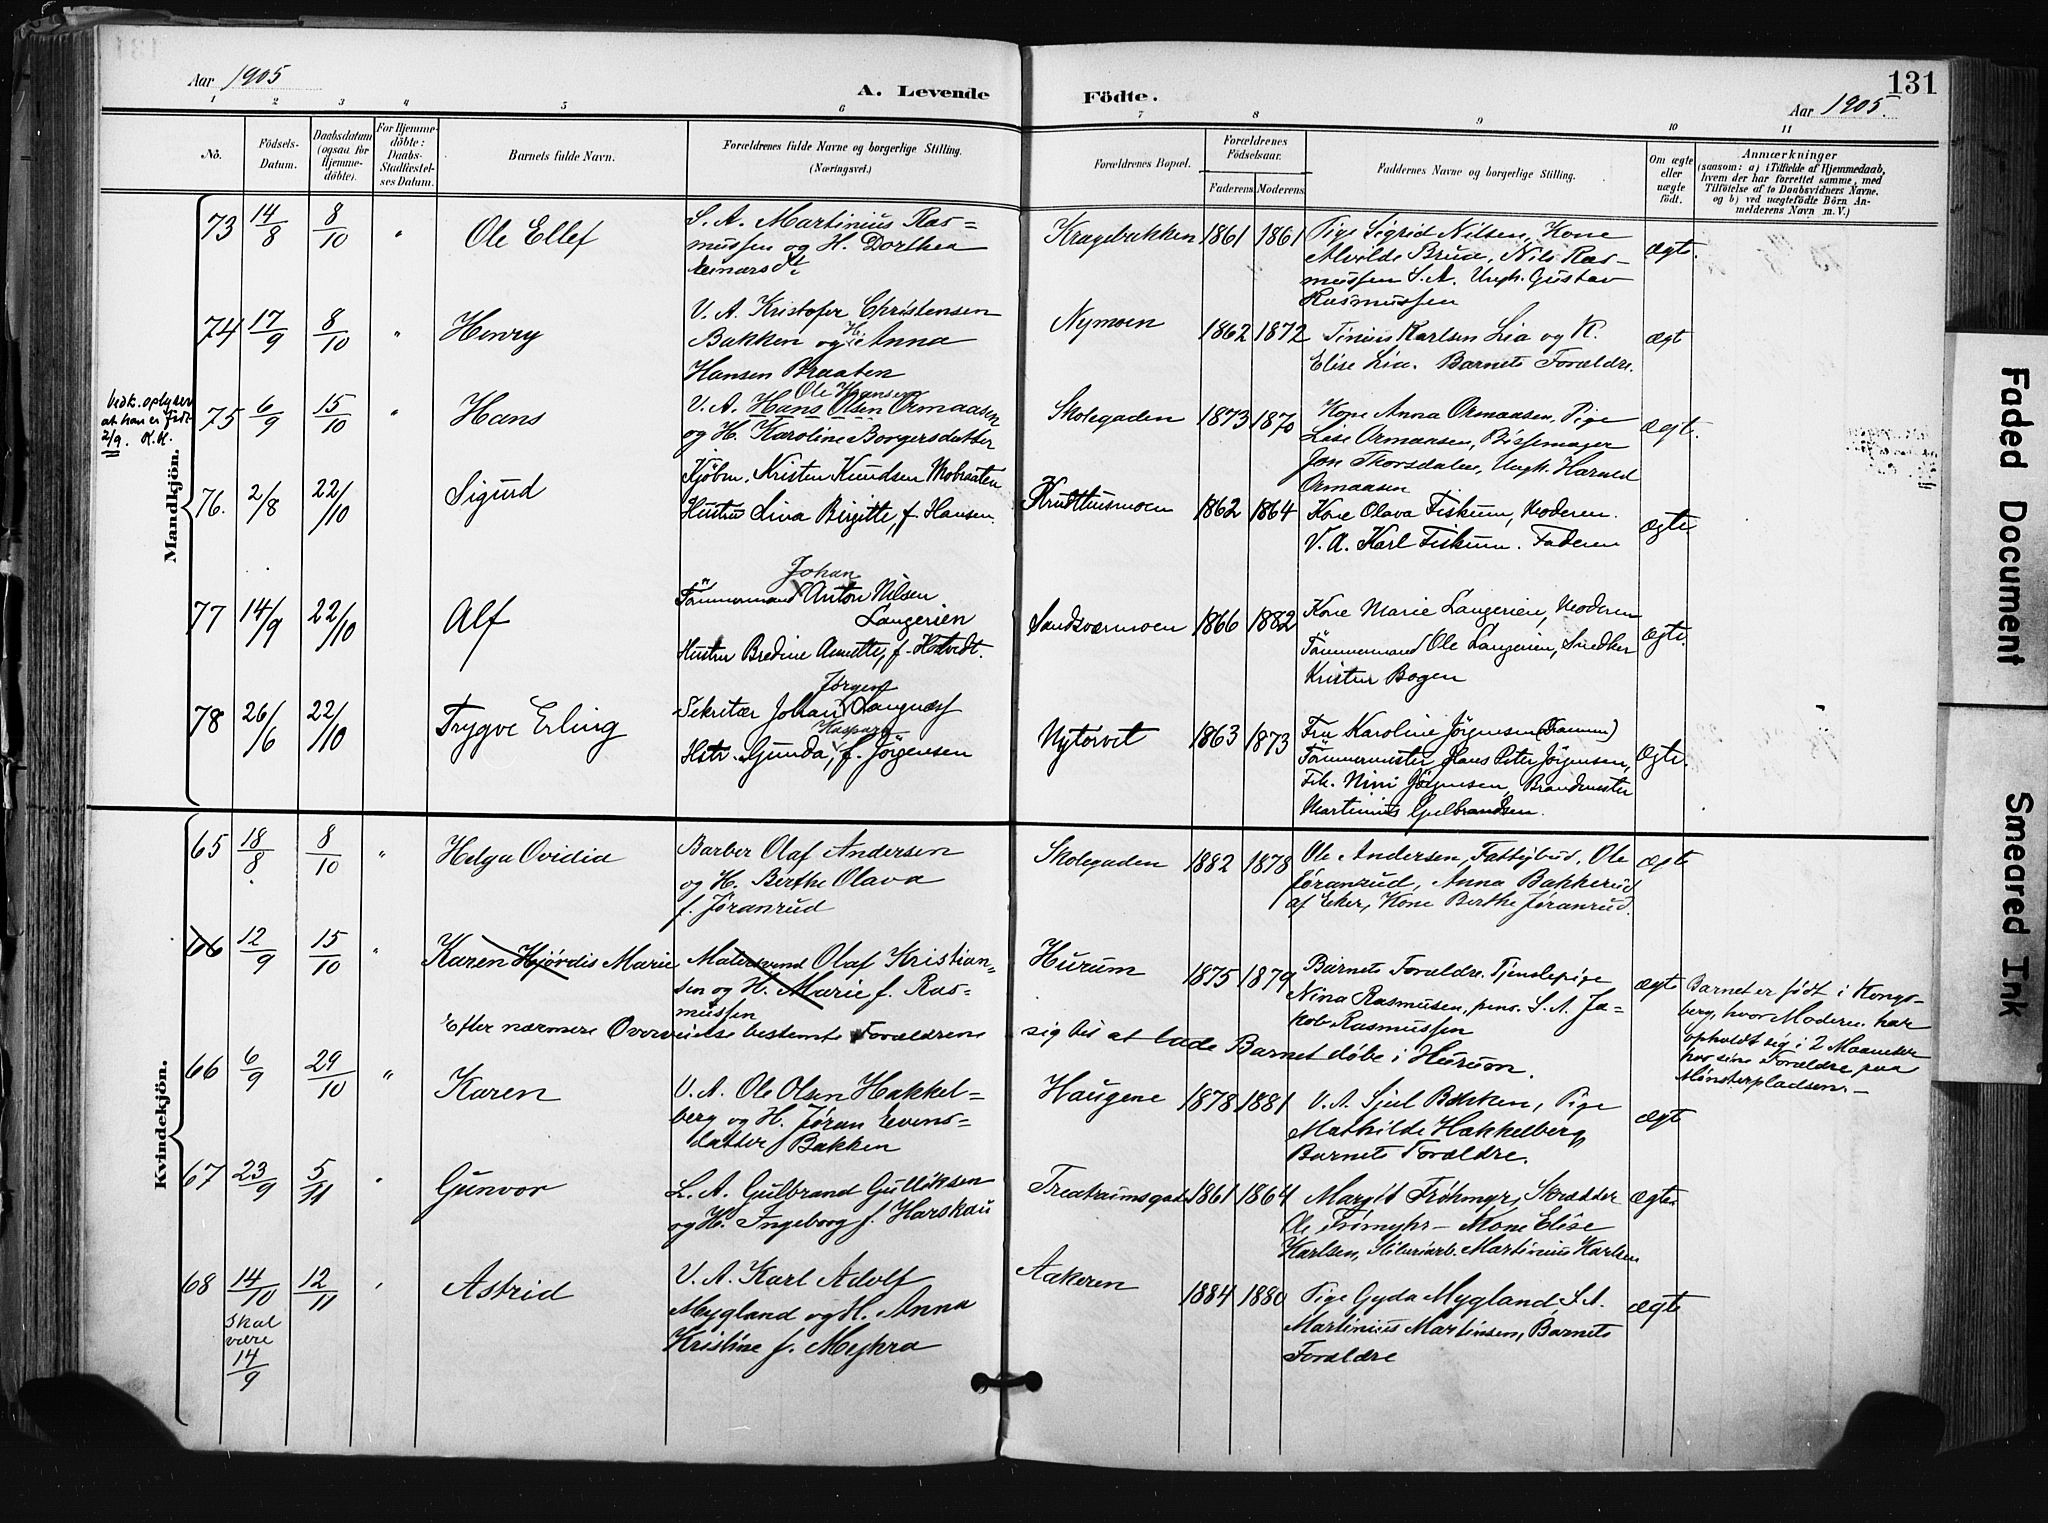 Aar 1905
A. Levende Födte.
131
Aar 1905.
1 2 3 4 5 6 7 8 9 10 11
No.
Födsels-Datum.
Daabsdatum (ogsaa for Hjemme-döbte).
For Hjemme-döbte: Daabs-Stadfæstel-ses Datum.
Barnets fulde Navn.
Forældrenes fulde Navne og borgerlige Stilling. (Næringsvei.)
Forældrenes Bopæl.
Forældrenes Födselsaar.
Faderens. Moderens.
Faddernes Navne og borgerlige Stilling.
Om ægte eller uægte födt.
Anmærkninger
(saasom: a) i Tilfælde af Hjemmedaab, hvem der har forrettet samme, med Tilföielse af to Daabsvidners Navne. og b) ved uægtefödte Börn An-melderens Navn m. V.)
Mandkjön.
73 14/8 8/10 " Ole Ellef
S. A. Martinius Ras=
mussen og H. Dorthea
Einarsdt.
Kragebakken 1861 1861
Pige Sigrid Nilsen, Kone
Alvilde Bruue, Nils Ras-
mussen S. A. Ungk. Gustav
Rasmussen
ægte.
74 17/9 8/10 " Henry
V. A. Kristofer Christensen
Bakken og H. Anna
Hansen Braaten
Nymoen 1862 1872
Tinius Karlsen Lia og K.
Elise Lia. Barnets Forældre.
ægt
Vedk. oplyser
at han er født
2/9. K.K.
75 6/9 15/10 " Hans
Ole Hansen
V. A. Hans Olsen Ormaasen
og H. Karoline Borgersdatter
Skolegaden 1873 1870
Kone Anna Ormaasen, Pige
Lise Ormaasen, Bøssemager
Jon Thorsdalen, Ungk. Harald
Ormaasen
ægt.
76. 2/8 22/10 Sigurd
Kjøbm. Kristen Knudsen Mobraaten
Hustru Lina Birgitte, f. Hansen.
Krudthusmoen 1862 1864
Kone Olava Fiskum, Moderen.
V. A. Karl Fiskum. Faderen
ægte.
77 14/9 22/10 Alf
Johan
Tömmermand Anton Nilsen
Langerien
Hustru Bredine Annette, f. Hotvedt.
Sandsværmoen 1866 1882
Kone Marie Langerien, Moderen
Tömmermand Ole Langerien, Snedker
Kristen Bogen
ægte.
78 26/6 22/10 Trygve Erling
Jørgen
Sekretær Johan Langnæss
Kaspara
Hstr. Gunda, f. Jörgensen
Nytorvet 1863 1873
Fru Karoline Jörgensen (Drammen)
Tömmermester Hans Peter Jörgensen,
Frk. Nini Jörgensen, Brandmester
Martinius Gulbrandsen.
Ægte.
Kvindekjön.
65 18/8 8/10 " Helga Ovidia
Barber Olaf Andersen
og H. Berthe Olava
f. Jøranrud
Skolegaden 1882 1878
Ole Andersen, Fattigbud, Ole
Jøranrud, Anna Bakkerud
af Eker, Kone Berthe Jøranrud.
ægte
66 12/9 15/10 " Karen Hjørdis Marie
Matersvend Olaf Kristian-
sen og H. Marie f. Ras-
mussen
Hurum 1875 1879
Barnets Forældre. Tjenestepige
Nina Rasmusen, pens. S. A. Ja-
kob Rasmussen
ægte
Barnet er født i Kongs-
berg, hvor Moderen har
opholdt sig i 2 Maaneder
hos sine Forældre paa
Mønsterpladsen.-
Efter nærmere Overveielse bestemte Forældrene sig til at lade Barnet døbe i Hurum.
66 6/9 29/10 " Karen
V. A. Ole Olsen Hakkel=
berg og H. Jøran Evens-
datter Bakken
Haugene 1878 1881
V. A. Sjul Bakken, Pige
Mathilde Hakkelberg
Barnets Forældre.
ægt
67 23/9 5/11 " Gunvor
L. A. Gulbrand Gulliksen
og H. Ingeborg f. Harskau
1861 1864
Margit Fröhmyr, Skrædder
Ole Frömyhr - Kone Elise
Karlsen, Sliberiarb. Martinius Karlsen
ægte
68 14/10 12/11 " Astrid
skal
være
14/9
V. A. Karl Adolf
Mygland og H. Anna
Kristine f. Myhra
Aakeren 1884 1880
Pige Gyda Mygland, S. A.
Martinius Martinsen, Barnets
Forældre
ægte
Faded Document
Smeared Ink